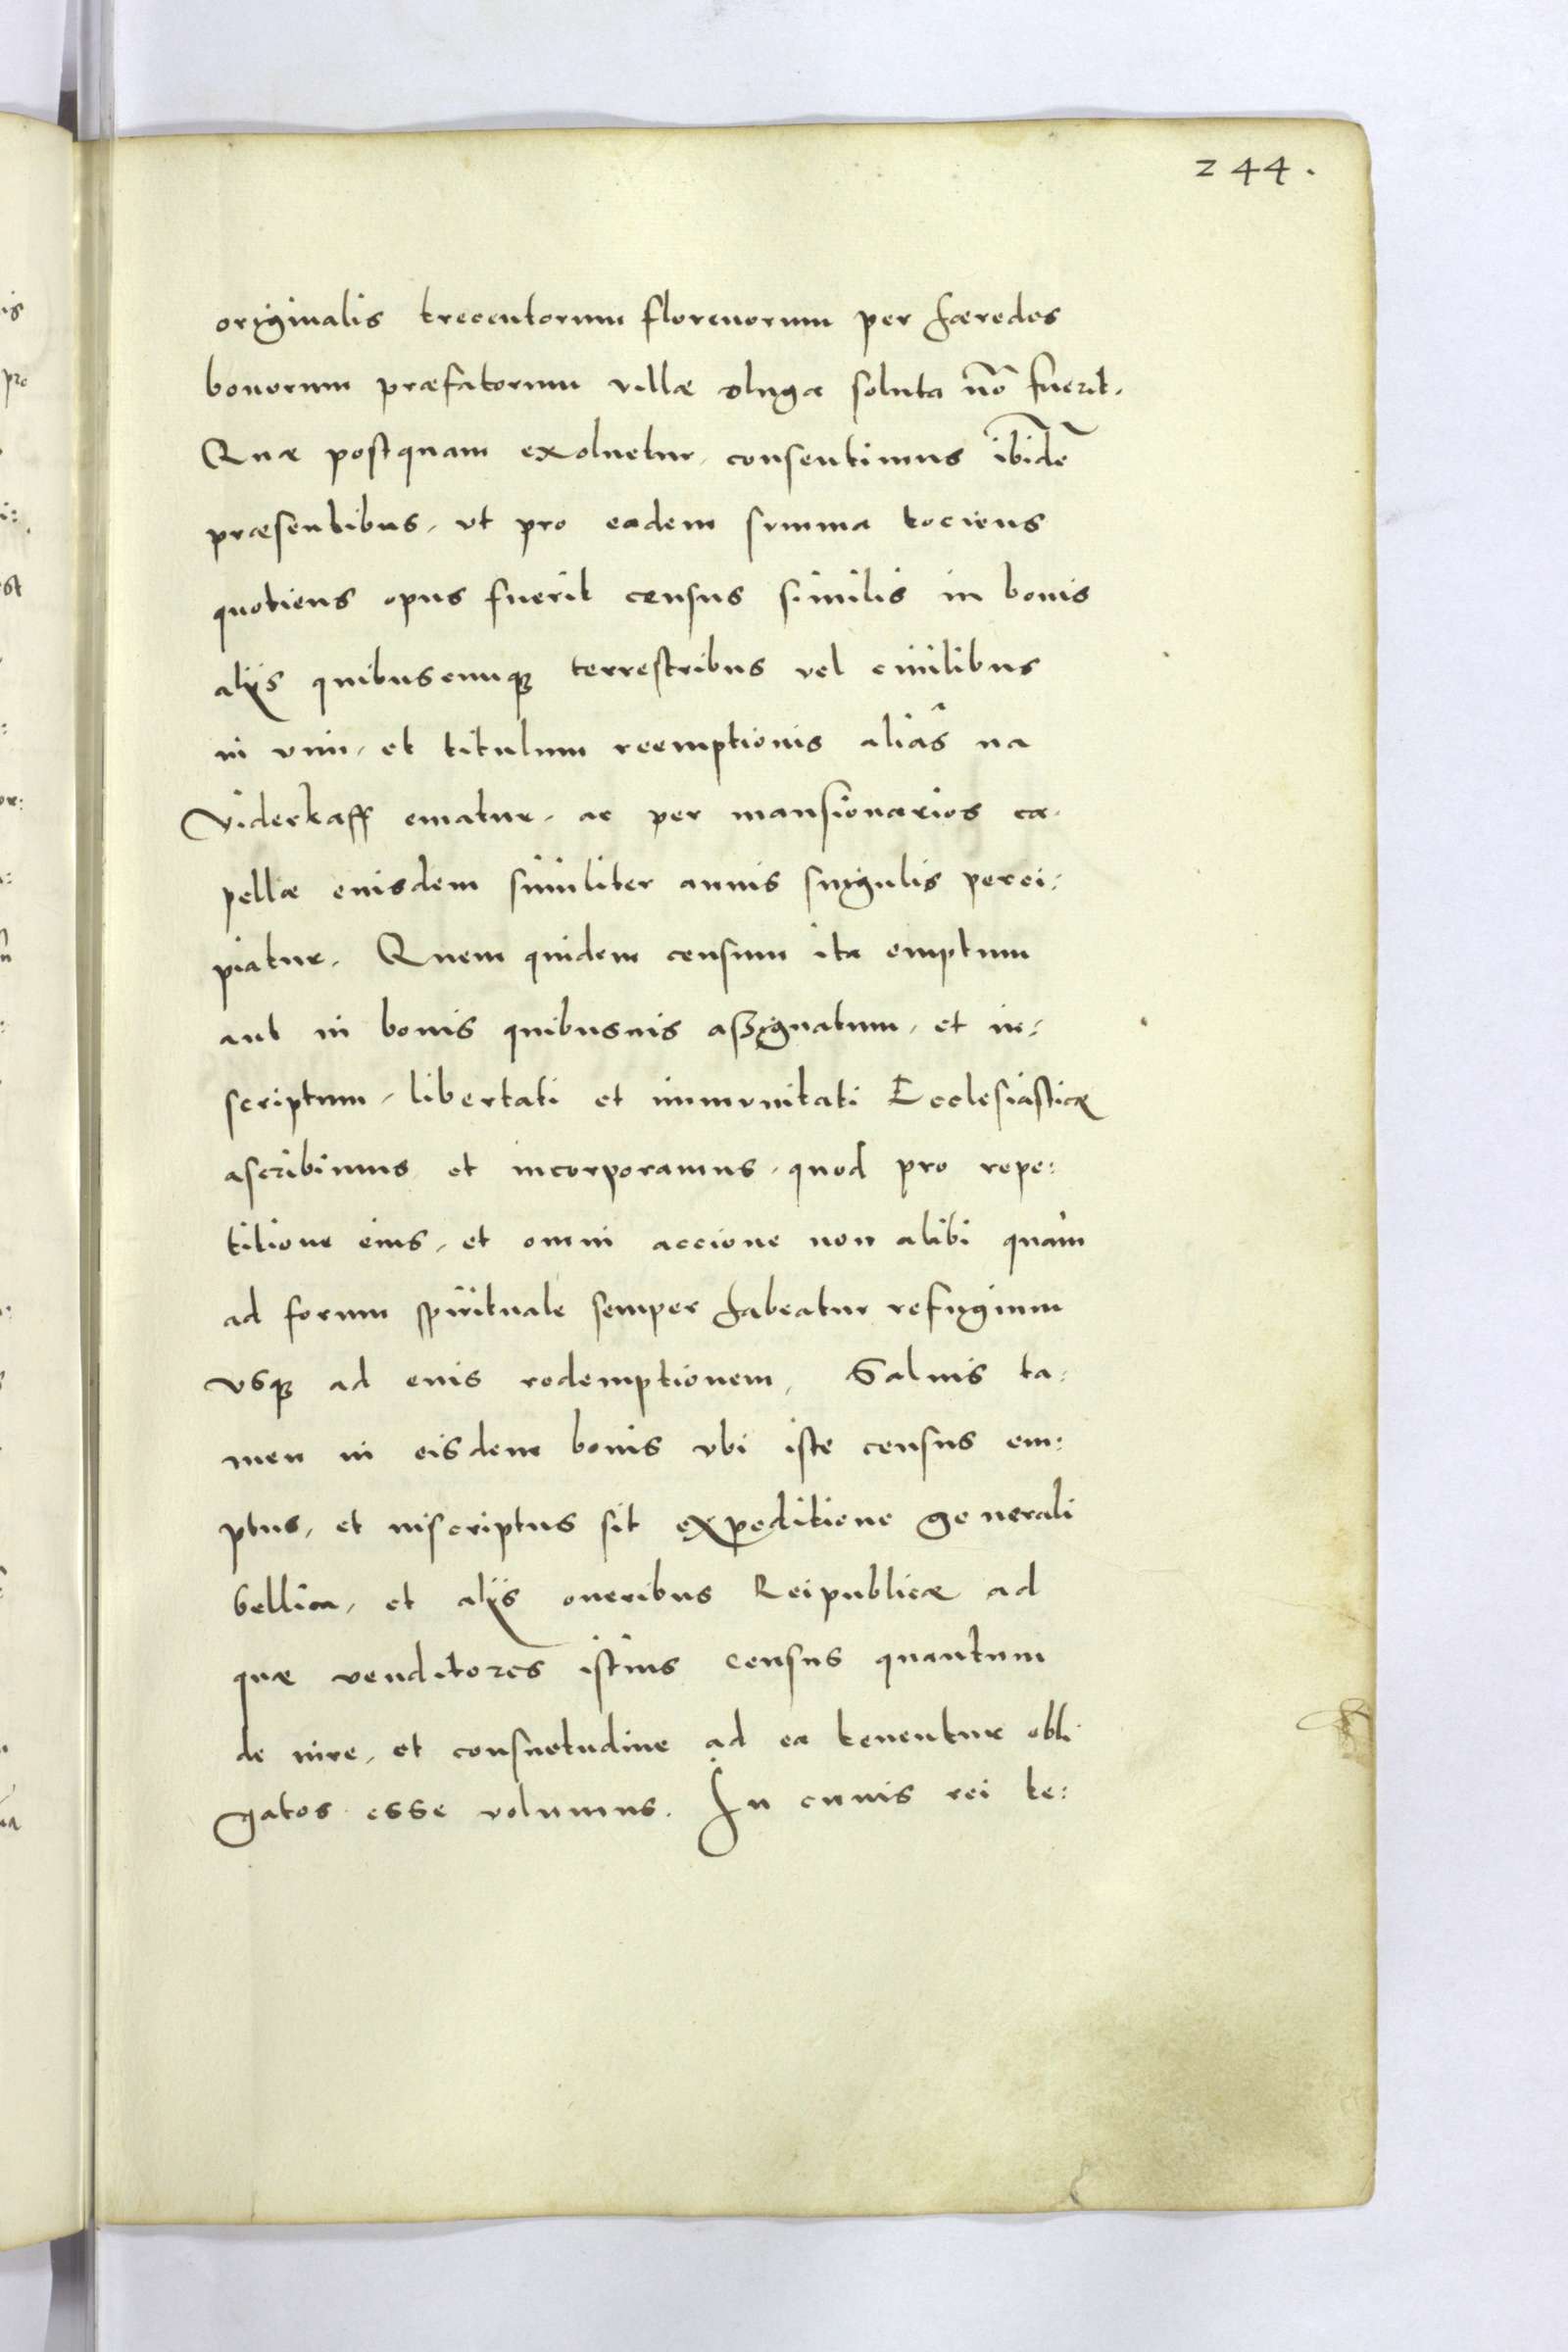 244.
originalis trecentorum florenorum per hæredes
bonorum præfatorum villæ dluga soluta nõ fuerit.
Quæ postquam exoluetur, consentimus ibidẽ
præsentibus, vt pro eadem summa tociens
quotiens opus fuerit census similis in bonis
alijs quibuscunq3 terrestribus vel ciuilibus
in vim, et titulum reemptionis aliâs na
Viderkaff ematur, ac per mansionarios ca-
pellæ euisdem similiter annis singulis perci:
piatur. Quem quidem censum ita emptum
aut in bonis quibusuis assignatum, et in:
scriptum, libertati et immunitati Ecclesiasticæ
ascribimus et incorporamus, quod pro repe:
titione eius, et omni accione non alibi quàm
ad forum spirituale semper habeatur refugium
vsq3 ad euis redemptionem, Saluis ta:
men in eisdem bonis vbi iste census em:
ptus, et inscriptus sit expeditione generali
bellica, et alijs oneribus Reipublicæ ad
quæ venditores istius census quantum
de iure, et consuetudine ad ea tenentur obli
gatos esse volumus. In cuuis rei te: